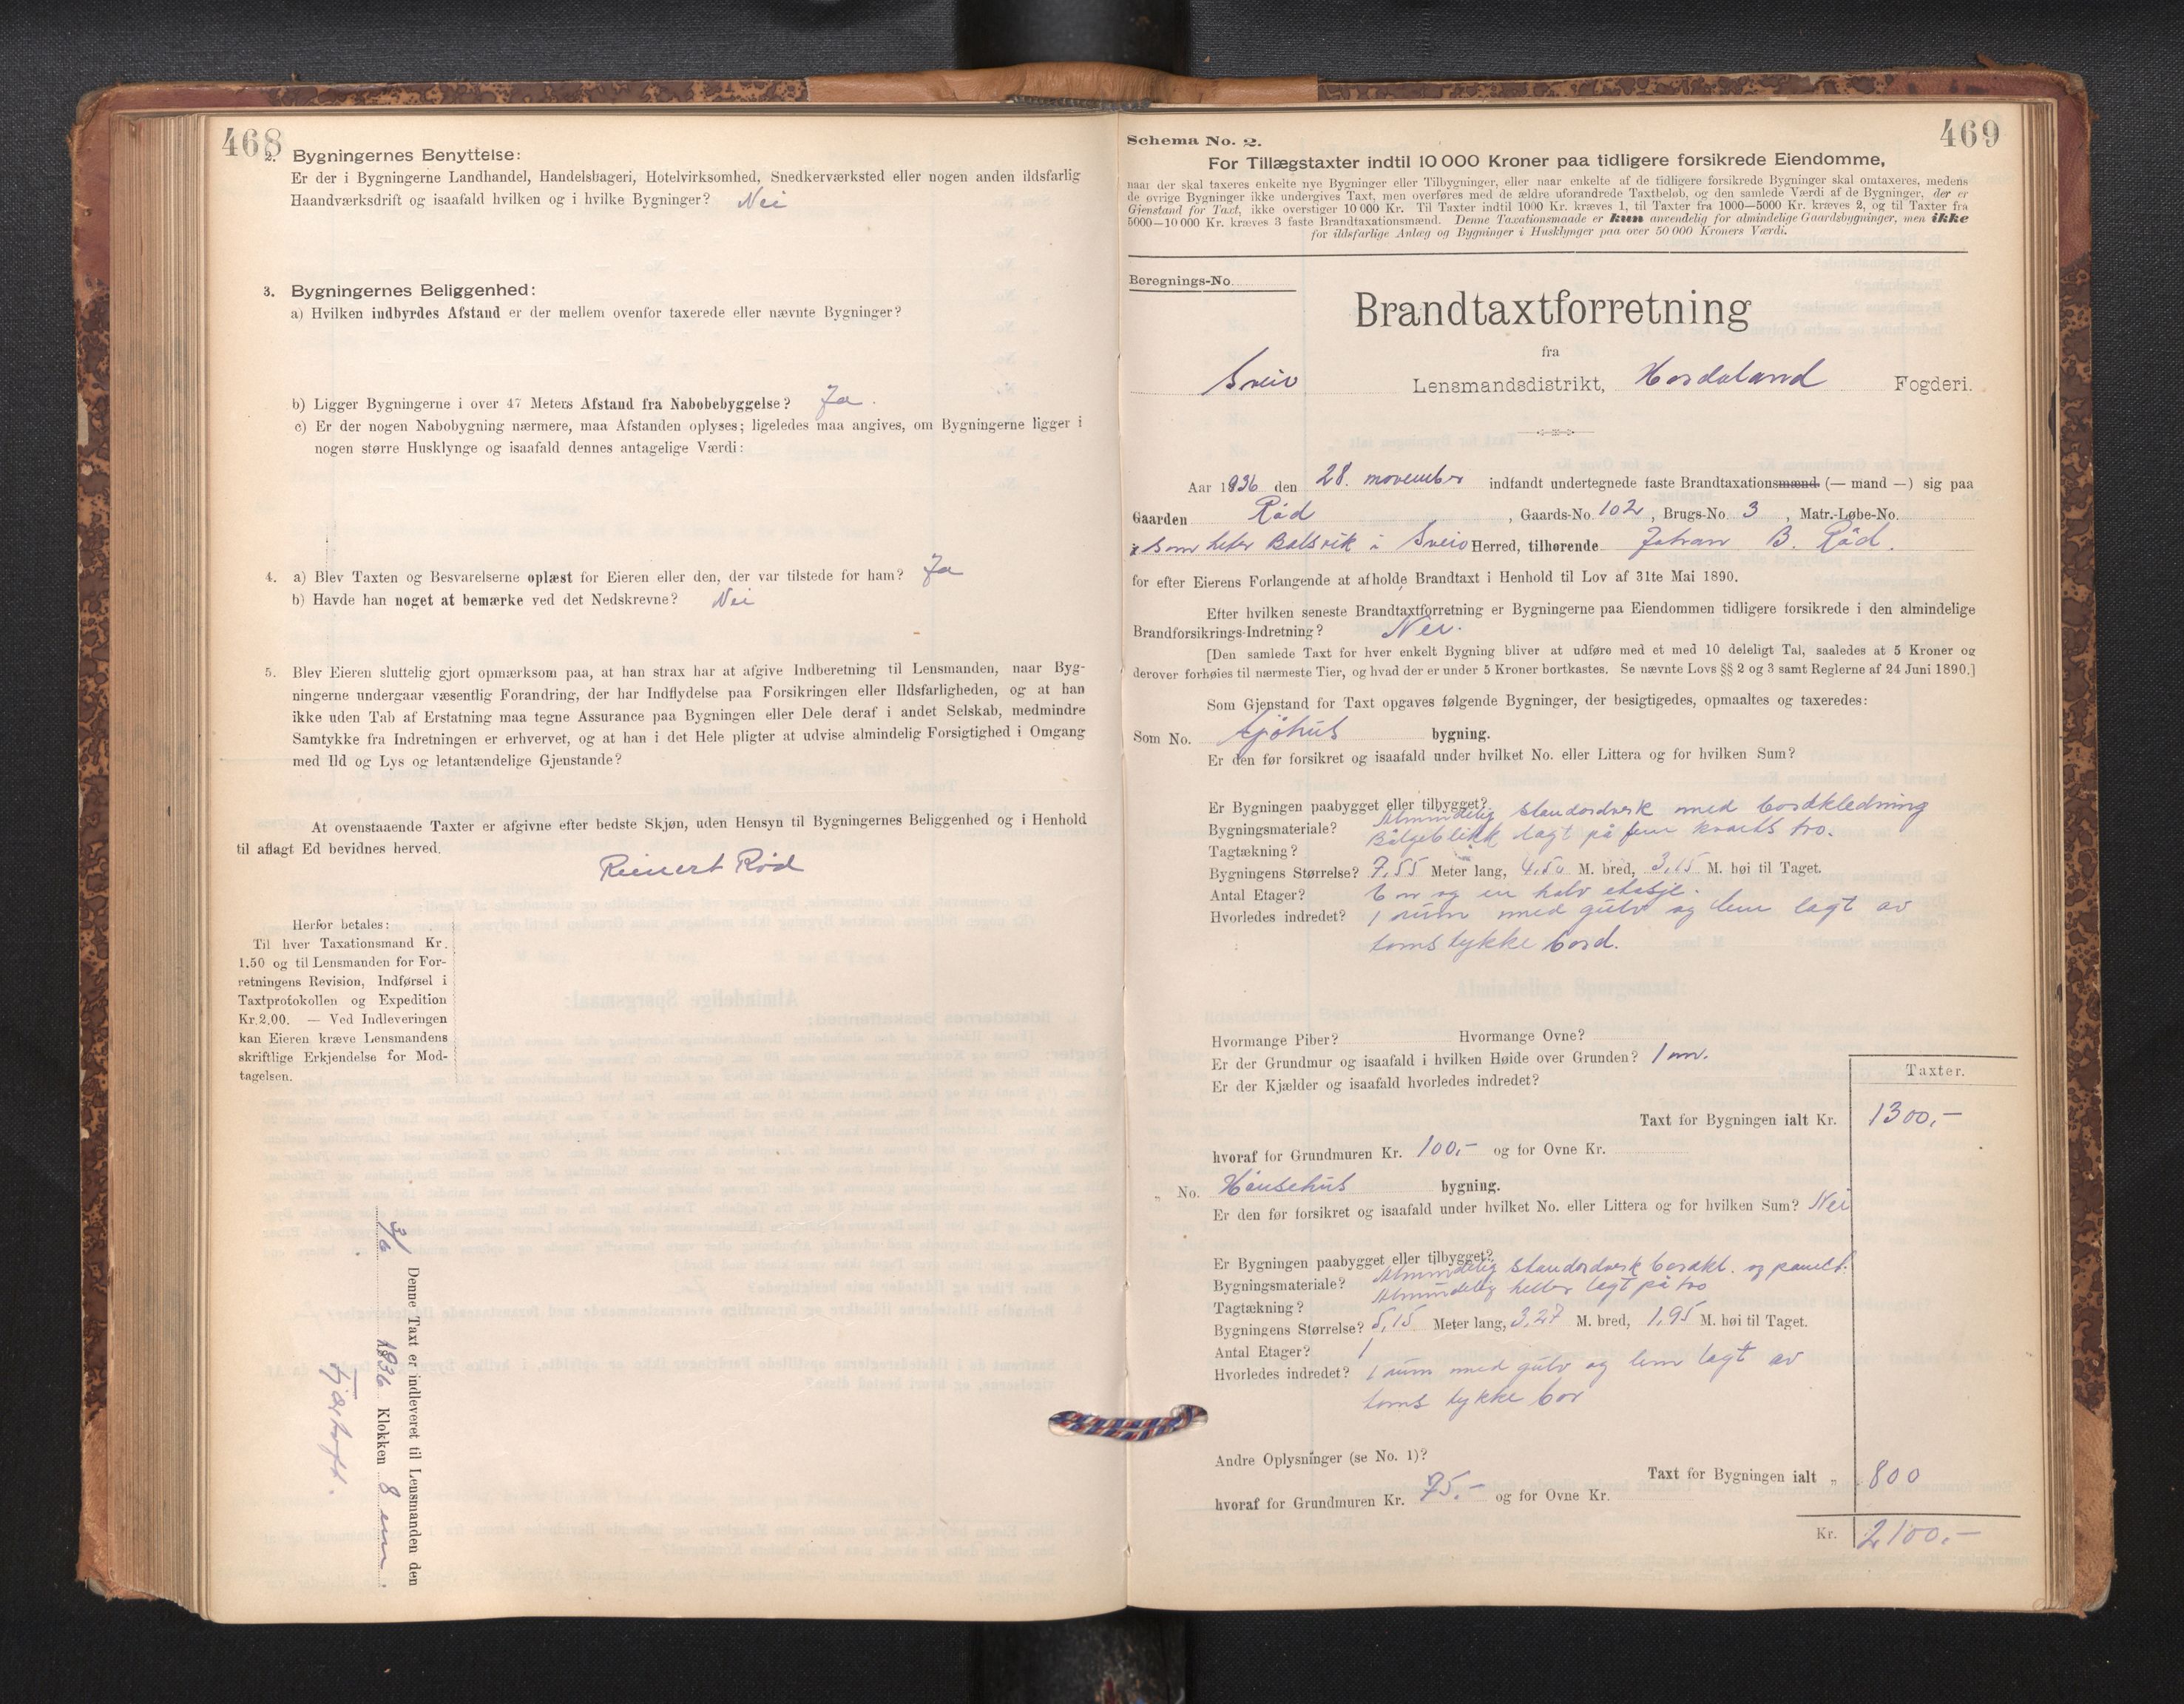 468
2. Bygningernes Benyttelse:
Er der i Bygningerne Landhandel, Handelsbageri, Hotelvirksomhed, Snedkerværksted eller nogen anden ildsfarlig
Haandværksdrift og isaafald hvilken og i hvilke Bygninger? Nei
3. Bygningernes Beliggenhed:
a) Hvilken indbyrdes Afstand er der mellem ovenfor taxerede eller nævnte Bygninger?
b) Ligger Bygningerne i over 47 Meters Afstand fra Nabobebyggelse? Ja.
c) Er der nogen Nabobygning nærmere, maa Afstanden oplyses; ligeledes maa angives, om Bygningerne ligger i
nogen større Husklynge og isaafald dennes antagelige Værdi:
4. a) Blev Taxten og Besvarelserne oplæst for Eieren eller den, der var tilstede for ham? Ja
b) Havde han noget at bemærke ved det Nedskrevne? Nei
5. Blev Eieren sluttelig gjort opmærksom paa, at han strax har at afgive Indberetning til Lensmanden, naar Byg-
ningerne undergaar væsentlig Forandring, der har Indflydelse paa Forsikringen eller Ildsfarligheden, og at han
ikke uden Tab af Erstatning maa tegne Assurance paa Bygningen eller Dele deraf i andet Selskab, medmindre
Samtykke fra Indretningen er erhvervet, og at han i det Hele pligter at udvise almindelig Forsigtighed i Omgang
med Ild og Lys og letantændelige Gjenstande?
At ovenstaaende Taxter er afgivne efter bedste Skjøn, uden Hensyn til Bygningernes Beliggenhed og i Henhold
til aflagt Ed bevidnes herved.
Reinert Rød
Herfor betales:
Til hver Taxationsmand Kr.
1.50 og til Lensmanden for For-
retningens Revision, Indførsel i
Taxtprotokollen og Expedition
Kr. 2.00. — Ved Indleveringen
kan Eieren kræve Lensmandens
skriftlige Erkjendelse for Mod-
tagelsen.
Denne Taxt er indleveret til Lensmanden den
3/6 1936 Klokken 8 em.
469
Schema No. 2.
For Tillægstaxter indtil 10 000 Kroner paa tidligere forsikrede Eiendomme,
naar der skal taxeres enkelte nye Bygninger eller Tilbygninger, eller naar enkelte af de tidligere forsikrede Bygninger skal omtaxeres, medens
de øvrige Bygninger ikke undergives Taxt, men overføres med de ældre uforandrede Taxtbeløb, og den samlede Værdi af de Bygninger, der er
Gjenstand for Taxt, ikke overstiger 10 000 Kr. Til Taxter indtil 1000 Kr. kræves 1, til Taxter fra 1000—5000 Kr. kræves 2, og til Taxter fra
5000—10 000 Kr. kræves 3 faste Brandtaxationsmænd. Denne Taxationsmaade er kun anvendelig for almindelige Gaardsbygninger, men ikke
for ildsfarlige Anlæg og Bygninger i Husklynger paa over 50 000 Kroners Værdi.
Beregnings-No.
Brandtaxtforretning
fra
Sveio Lensmandsdistrikt, Hordaland Fogderi.
Aar 1936 den 28. november indfandt undertegnede faste Brandtaxationsmænd (— mand —) sig paa
Gaarden Rød , Gaards-No. 102, Brugs-No. 3 , Matr.-Løbe-No.
som heter Balsvik i Sveio Herred, tilhørende Johan B. Rød.
for efter Eierens Forlangende at afholde Brandtaxt i Henhold til Lov af 31te Mai 1890.
Efter hvilken seneste Brandtaxtforretning er Bygningerne paa Eiendommen tidligere forsikrede i den almindelige
Brandforsikrings-Indretning? Nei.
[Den samlede Taxt for hver enkelt Bygning bliver at udføre med et med 10 deleligt Tal, saaledes at 5 Kroner og
derover forhøies til nærmeste Tier, og hvad der er under 5 Kroner bortkastes. Se nævnte Lovs §§ 2 og 3 samt Reglerne af 24 Juni 1890.]
Som Gjenstand for Taxt opgaves følgende Bygninger, der besigtigedes, opmaaltes og taxeredes:
Som No. Sjøhus bygning.
Er den før forsikret og isaafald under hvilket No. eller Littera og for hvilken Sum?
Er Bygningen paabygget eller tilbygget?
Bygningsmateriale? Almindelig standardverk med bordkledning
Tagtækning? Bølgeblikk lagt på fem kvarts tro.
Bygningens Størrelse? 7,55 Meter lang, 4,50 M. bred, 3,15 M. høi til Taget.
Antal Etager? En og en halv etasje.
Hvorledes indredet? 1 rum med gulv og lem lagt av
toms tykke bord.
Hvormange Piber? Hvormange Ovne?
Er der Grundmur og isaafald i hvilken Høide over Grunden? 1 m.
Er der Kjælder og isaafald hvorledes indredet?
Taxter.
Taxt for Bygningen ialt Kr. 1300,-
hvoraf for Grundmuren Kr. 100,- og for Ovne Kr.
„ No. Hønsehus bygning.
Er den før forsikret og isaafald under hvilket No. eller Littera og for hvilken Sum? Nei
Er Bygningen paabygget eller tilbygget?
Bygningsmateriale? Almindelig standardverk bordkl. og panelt.
Tagtækning? Almindelig heller lagt på tro
Bygningens Størrelse? 5,15 Meter lang, 3,27 M. bred, 1,95 M. høi til Taget.
Antal Etager? 1
Hvorledes indredet? 1 rum med gulv og lem lagt av
toms tykke bor
Andre Oplysninger (se No. 1)?
Taxt for Bygningen ialt „ 800
hvoraf for Grundmuren Kr. 75.- og for Ovne Kr.
Kr. 2100,-